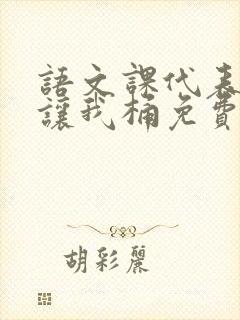 語文課代表
讓我桶免費
胡彩麗